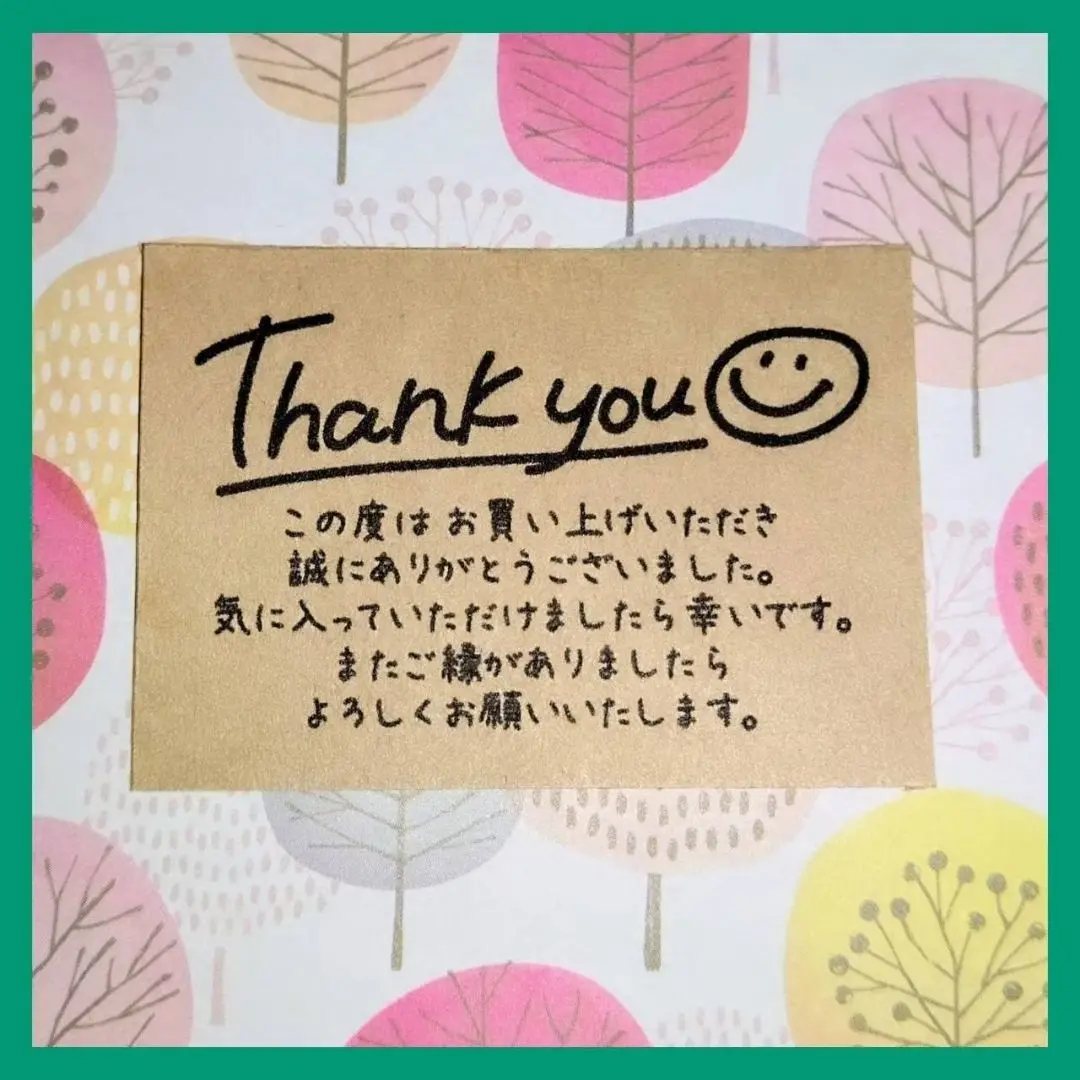 Thank you
この度はお買い上げいただき
誠にありがとうございました。
気に入っていただけましたら幸いです。
またご縁がありましたら
よろしくお願いいたします。